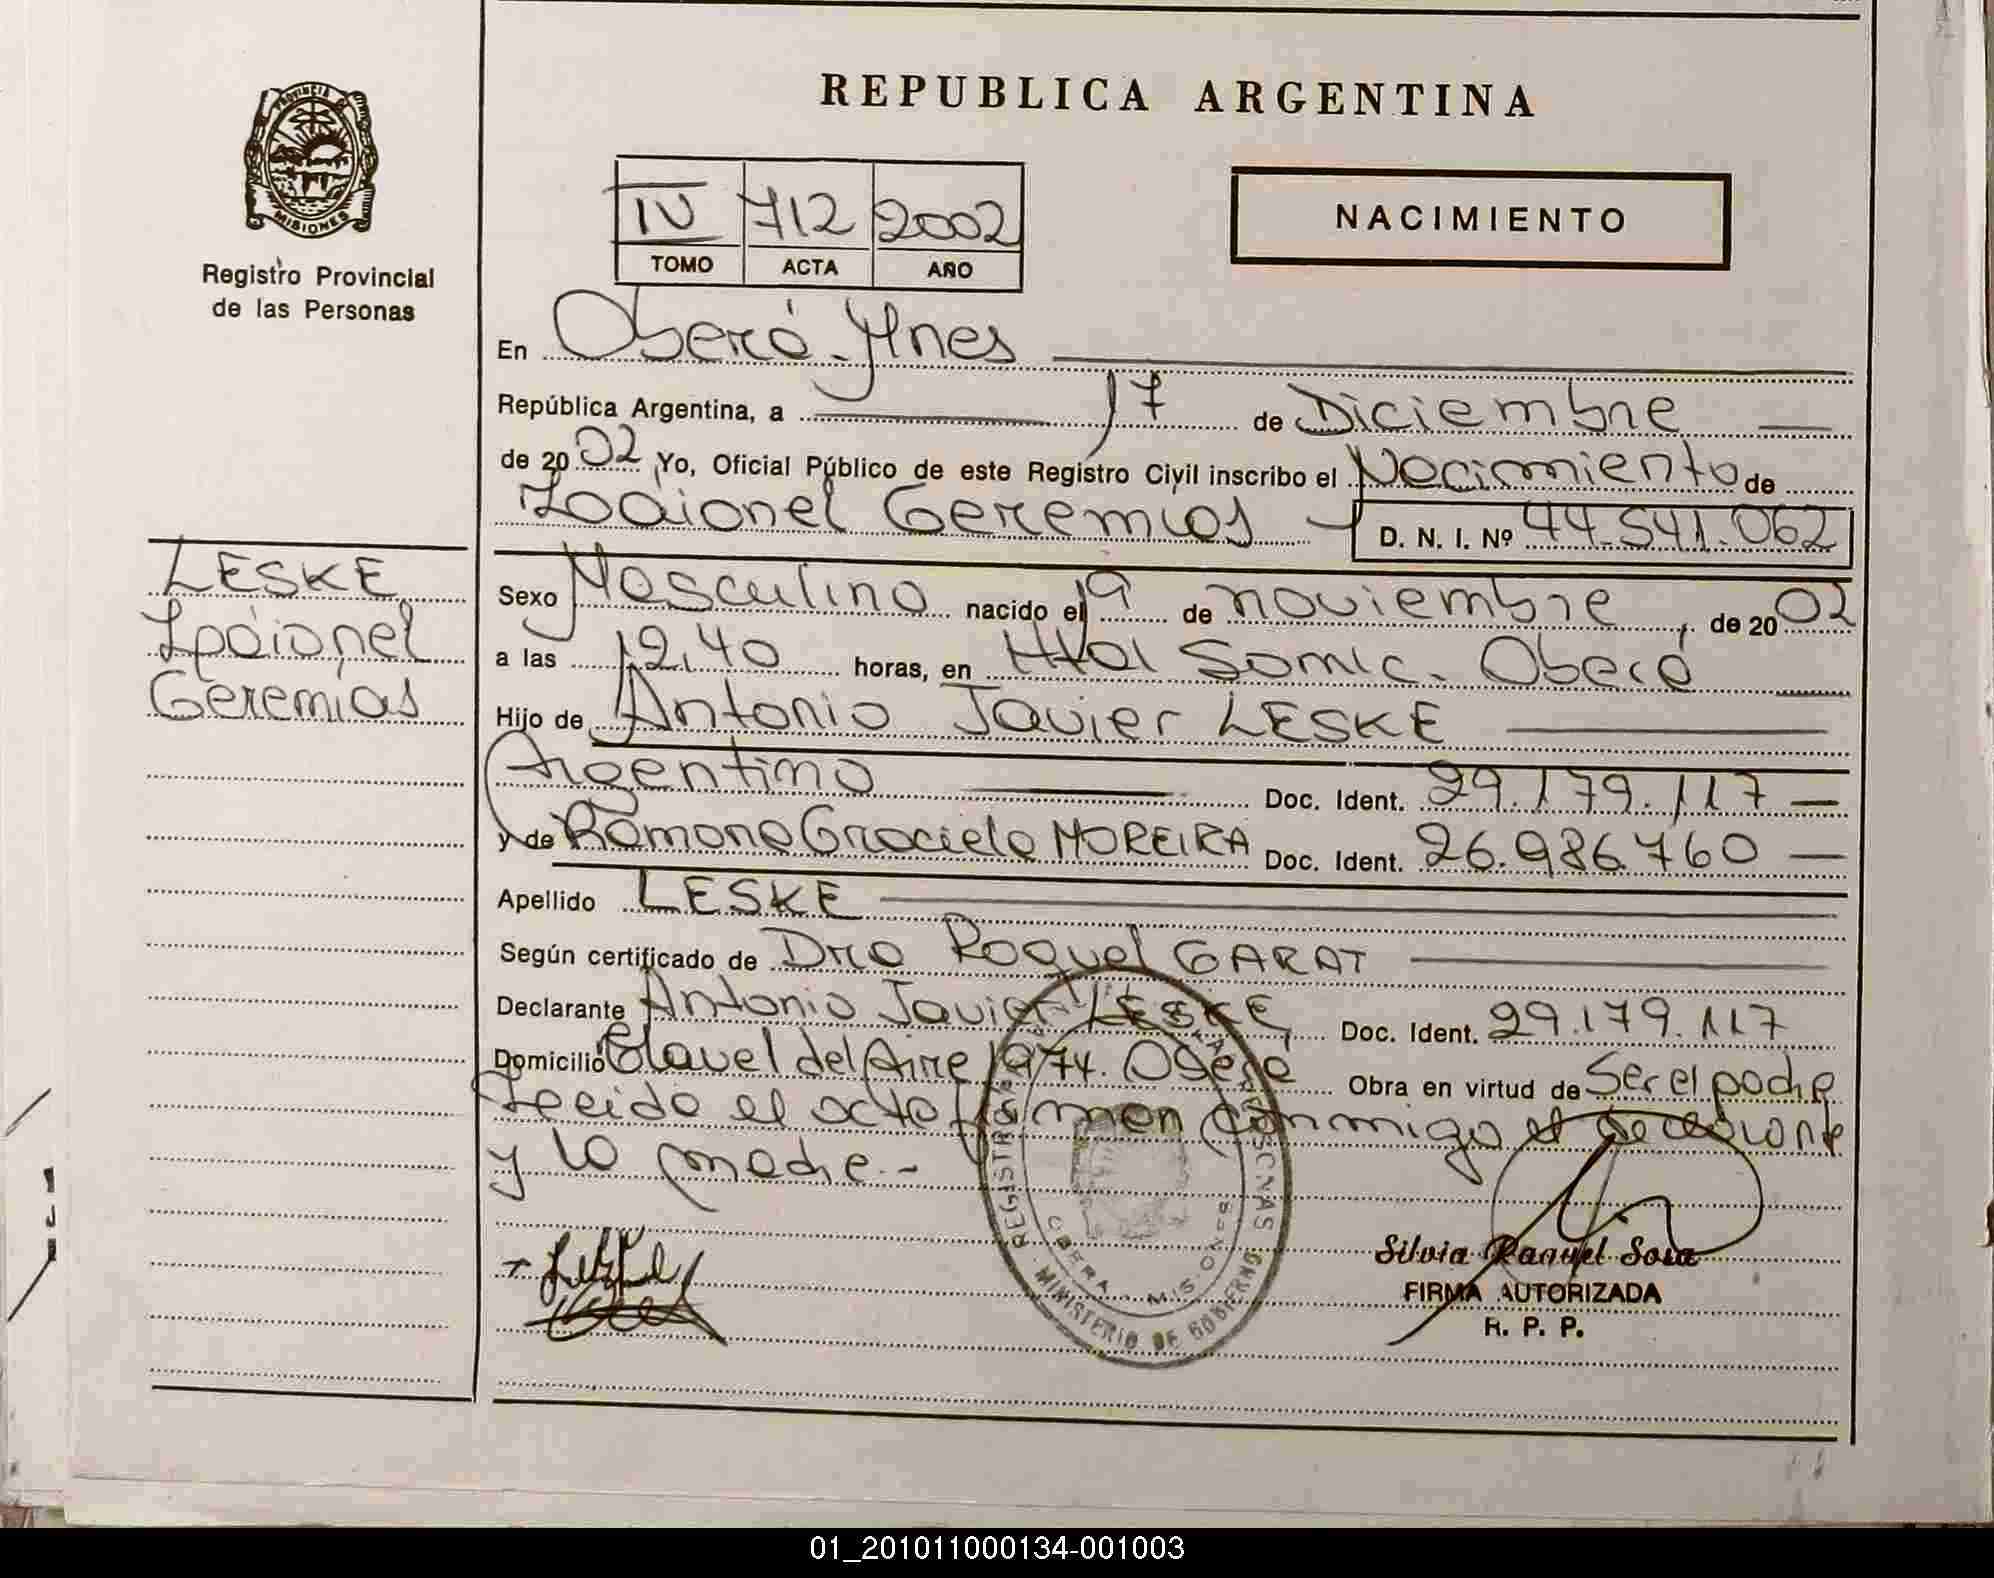 REPUBLICA ARGENTINA
PROVINCIA DE
MISIONES
Registro Provincial
de las Personas
IV 712 2002
TOMO ACTA AÑO
NACIMIENTO
En Oberá Ynes
República Argentina, a 17 de Diciembre
de 2002 Yo, Oficial Público de este Registro Civil inscribo el Nacimiento de
Geremias D. N. I. Nº 44.541.062
LESKE
Geremías
Sexo Masculino nacido el 19 de noviembre, de 2002
a las 12,40 horas, en Htal Samic. Oberá
Hijo de Antonio Javier LESKE
Argentino Doc. Ident. 29.179.117
y de Ramona Graciela MOREIRA Doc. Ident. 26.986.760
Apellido LESKE
Según certificado de Dra Raquel GARAT
Declarante Antonio Javier LESKE Doc. Ident. 29.179.117
Domicilio Clavel del Aire 1974. Oberá Obra en virtud de Ser el padre
Leida el acta firman conmigo el declarante
y la madre.-
MINISTERIO DE GOBIERNO
OBERA - MISIONES
Silvia Raquel Sosa
FIRMA AUTORIZADA
R. P. P.
01_201011000134-001003